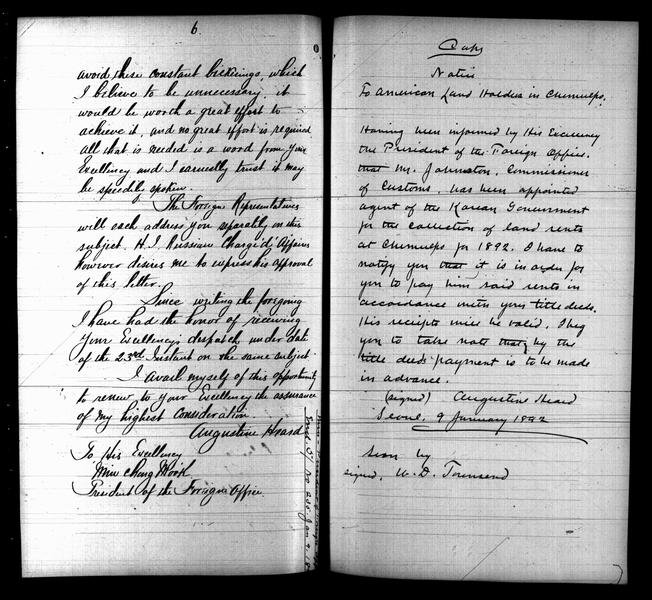 6
avoid these constant bickerings, which
I believe to be unnecessary, it
would be worth a great effort to
achieve it, and no great effort is required
all that is needed is a word from Your
Excellency and I earnestly trust it may
be speedily spoken.
The Foreign Representatives
will each address you separately on this
subject. H.I. Russian Chargé d'Affaires
however desires me to express his approval
of this letter.
Since writing the foregoing
I have had the honor of receiving
Your Excellency's dispatch, under date
of the 23rd Instant on the same subject.
I avail myself of this opportunity
to renew to Your Excellency the assurance
of my highest Consideration.
Augustine Heard
To His Excellency
Min Chong Mook
President of the Foreign Office
Copy
Notice
To American Land Holders in Chemulpo.
Having been informed by His Excellency
the President of the Foreign Office.
that Mr. Johnston, Commissioner
of Customs. has been appointed
agent of the Korean Government
for the collection of land rents
at Chemulpo for 1892. I have to
notify you that it is in order for
you to pay him said rents in
accordance with your title deeds.
His receipts will be valid. I beg
you to take note that by the
title deeds payment is to be made
in advance.
(signed) Augustine Heard
Seoul, 9 January 1892
Seen by
signed, W. D. Townsend